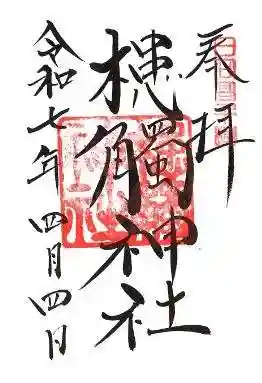 奉拝
槵觸神社
令和七年四月四日